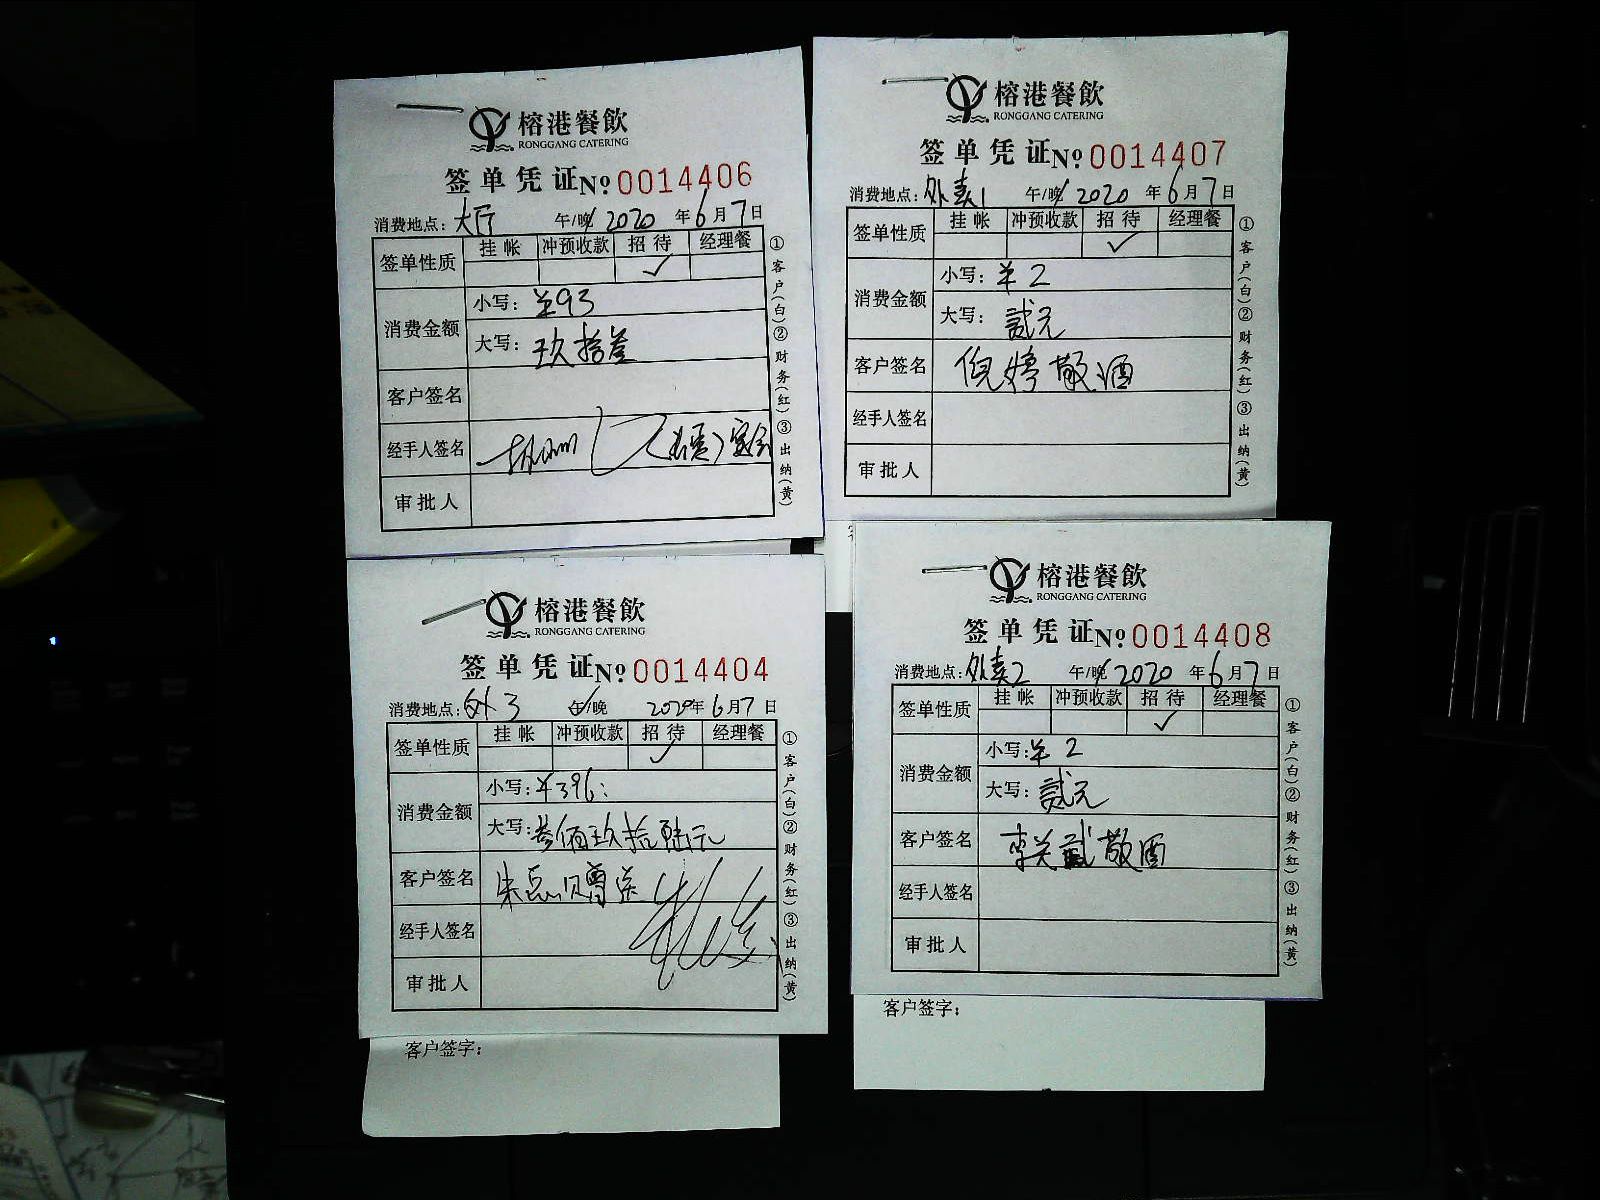 榕港餐飲
RONGGANG CATERING
签单凭证№0014406
消费地点:大厅 午/晚 2020年6月7日
签单性质 挂帐 冲预收款 招待 经理餐
✓
消费金额 小写:¥93
大写:玖拾叁
客户签名
经手人签名
审批人
①客户(白)②财务(红)③出纳(黄)
榕港餐飲
RONGGANG CATERING
签单凭证№0014407
消费地点:外卖1 午/晚 2020年6月7日
签单性质 挂帐 冲预收款 招待 经理餐
✓
消费金额 小写:¥2
大写:贰元
客户签名 倪婷敬酒
经手人签名
审批人
①客户(白)②财务(红)③出纳(黄)
榕港餐飲
RONGGANG CATERING
签单凭证№0014404
消费地点:外3 午/晚 2020年6月7日
签单性质 挂帐 冲预收款 招待 经理餐
✓
消费金额 小写:¥396
大写:叁佰玖拾陆元
客户签名 赠送
经手人签名
审批人
①客户(白)②财务(红)③出纳(黄)
客户签字:
榕港餐飲
RONGGANG CATERING
签单凭证№0014408
消费地点:外卖2 午/晚 2020年6月7日
签单性质 挂帐 冲预收款 招待 经理餐
✓
消费金额 小写:¥2
大写:贰元
客户签名 敬酒
经手人签名
审批人
①客户(白)②财务(红)③出纳(黄)
客户签字: